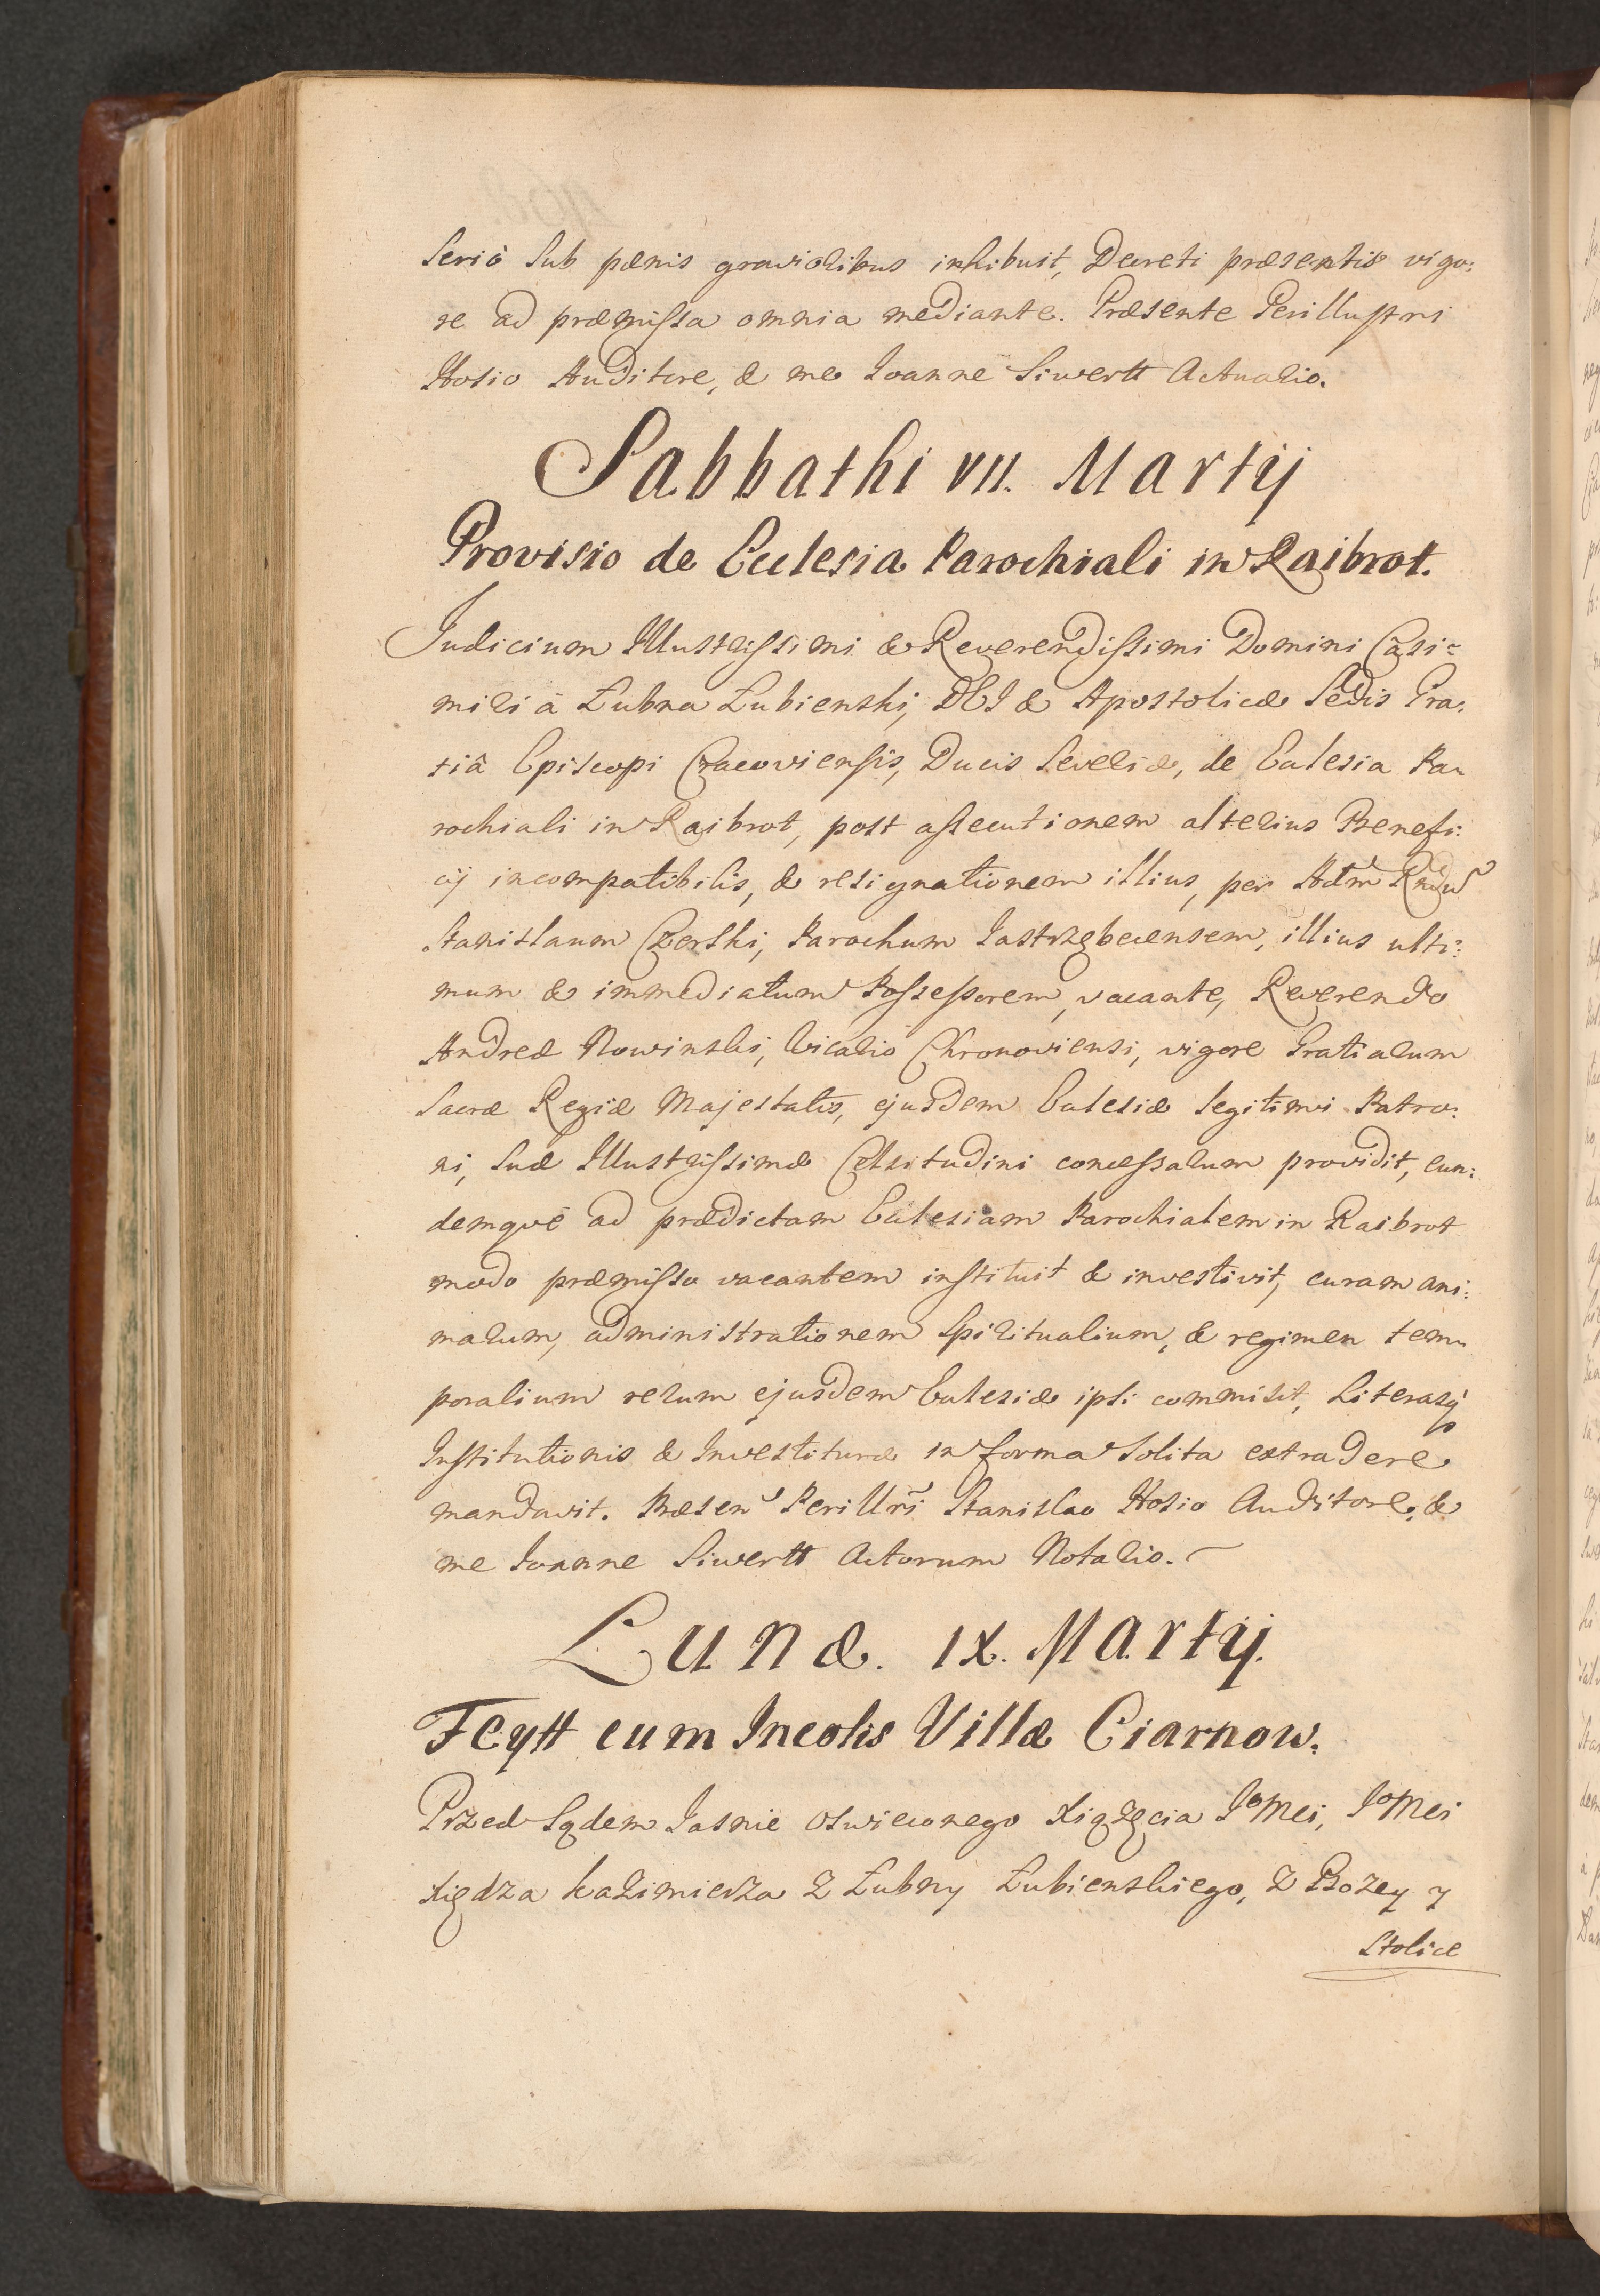 Seriò sub pænis gravioribus inhibuit, Decreti præsentis vigo:
re ad præmissa omnia mediante. Præsente Perillustri
Hosio Auditore, & me Ioanne Siwertt Actuario.
Sabbathi VII. Martij
Provisio de Ecclesia Parochiali in Raibrot.
Iudicium Illustrissimi & Reverendissimi Domini Casi-
miri à Łubna Łubienski, DEI & Apostolicæ Sedis Gra:
tiâ Episcopi Cracoviensis, Ducis Severiæ, de Ecclesia Pa-
rochiali in Raibrot, post assecutionem alterius Benefi:
cij incompatibilis, & resignationem illius, per Adm Rndū
Stanislaum Czerski, Parochum Iastrzębecensem, illius ulti:
mum & immediatum Possessorem, vacante, Reverendo
Andreæ Nowinski, Vicario Chronoviensi, vigore Gratiarum
Sacræ Regiæ Majestatis, ejusdem Ecclesiæ legitimi Patro:
ni, Suæ Illustrissimæ Celsitudini concessarum providit, eun:
demquè ad prædictam Ecclesiam Parochialem in Raibrot
modo præmisso vacantem instituit & investivit, curam ani:
marum, administrationem Spiritualium, & regimen tem-
poralium rerum ejusdem Ecclesiæ ipsi commisit, Literasq́
Institutionis & Investituræ in forma solita extradere
mandavit. Præsen Perillri Stanislao Hosio Auditore, &
me Ioanne Siwertt Actorum Notario.
Lunæ. IX. Martij.
Feytt cum Incolis Villæ Ciarnow.
Przed Sądem Iasnie Oswieconego Xiążęcia IoMci, IoMci
Xiędza Kazimierza z Łubny Łubienskiego, z Bozey y
Stolice